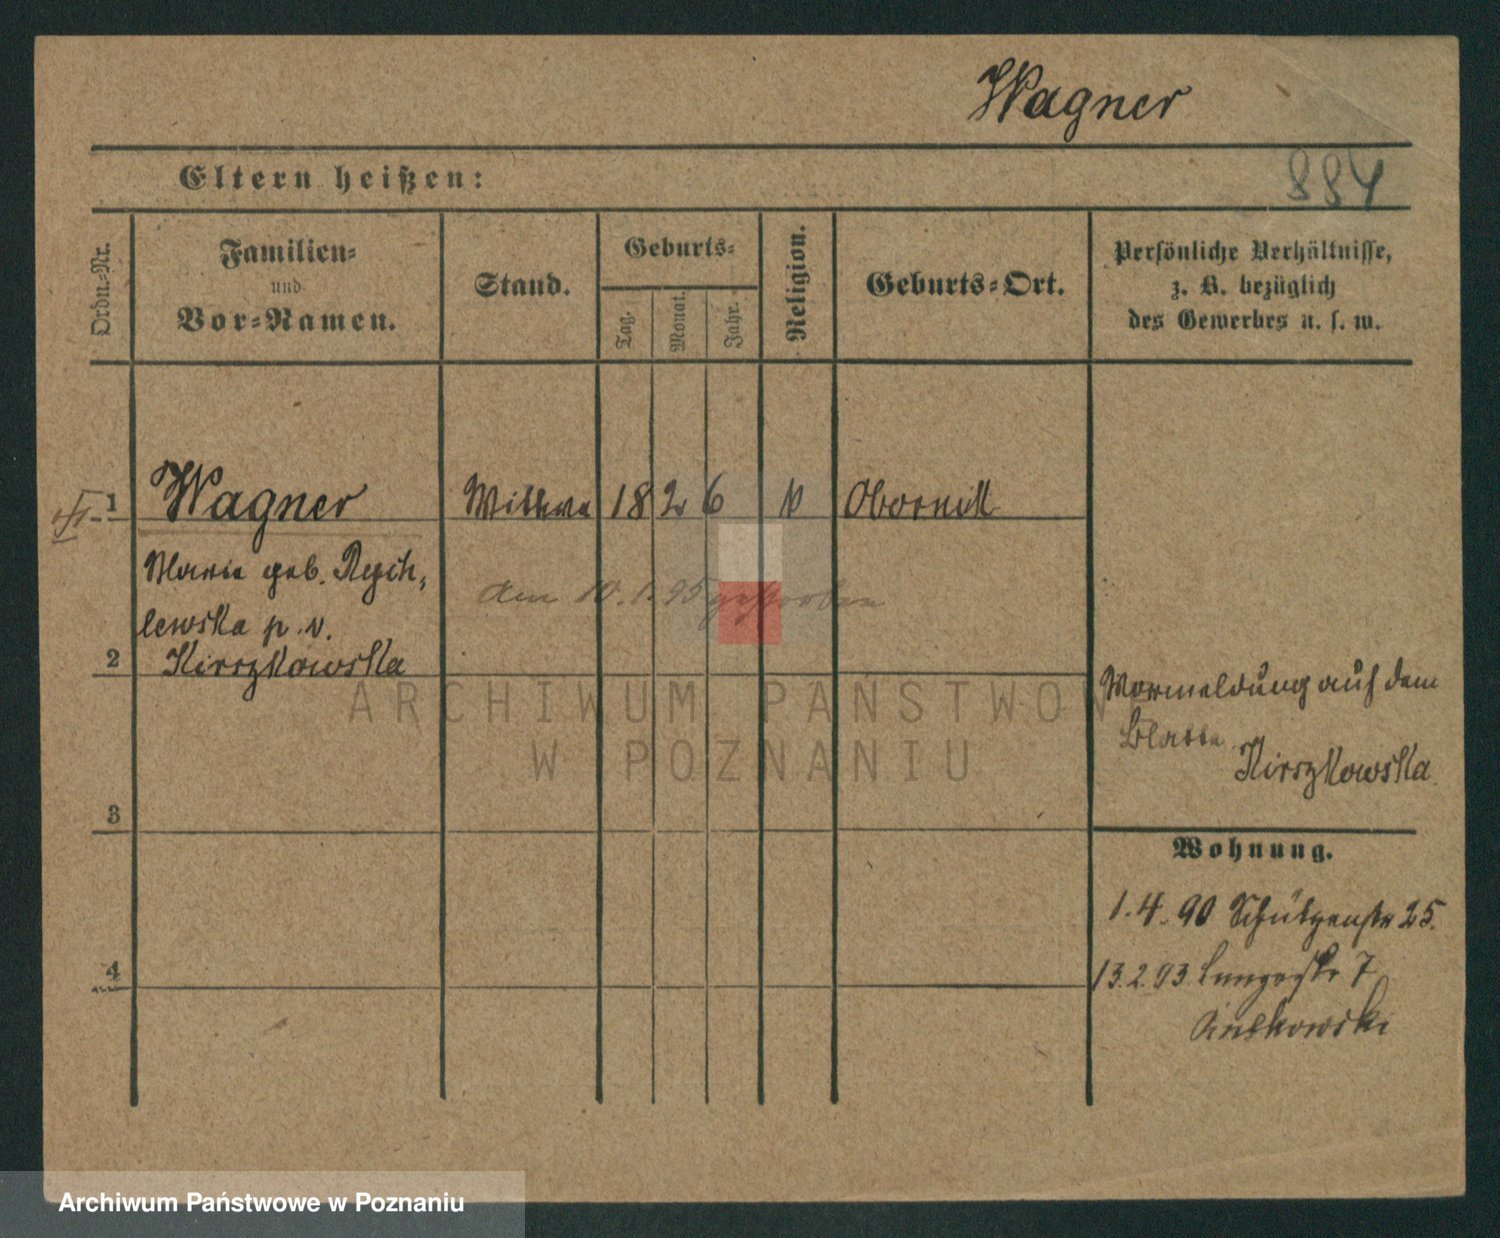 Wagner
Eltern heißen:
884
Ordn.-Nr.
Familien-
und
Vor-Namen.
Stand.
Geburts-
Tag.
Monat.
Jahr.
Religion.
Geburts-Ort.
Persönliche Verhältnisse,
z. B. bezüglich
des Gewerbes u. s. w.
1
Wagner
Wittwe
1826
Obornik
Marie geb. Rych-
lewska p. v.
Kirszkowska
am 10.1.95 gestorben
2
Vormeldung auf dem
Blatte
Kirszkowska
ARCHIWUM PAŃSTWOWE
W POZNANIU
3
Wohnung.
1.4.90 Schützenstr 25.
4
13.2.93 Langestr 7
Archiwum Państwowe w Poznaniu